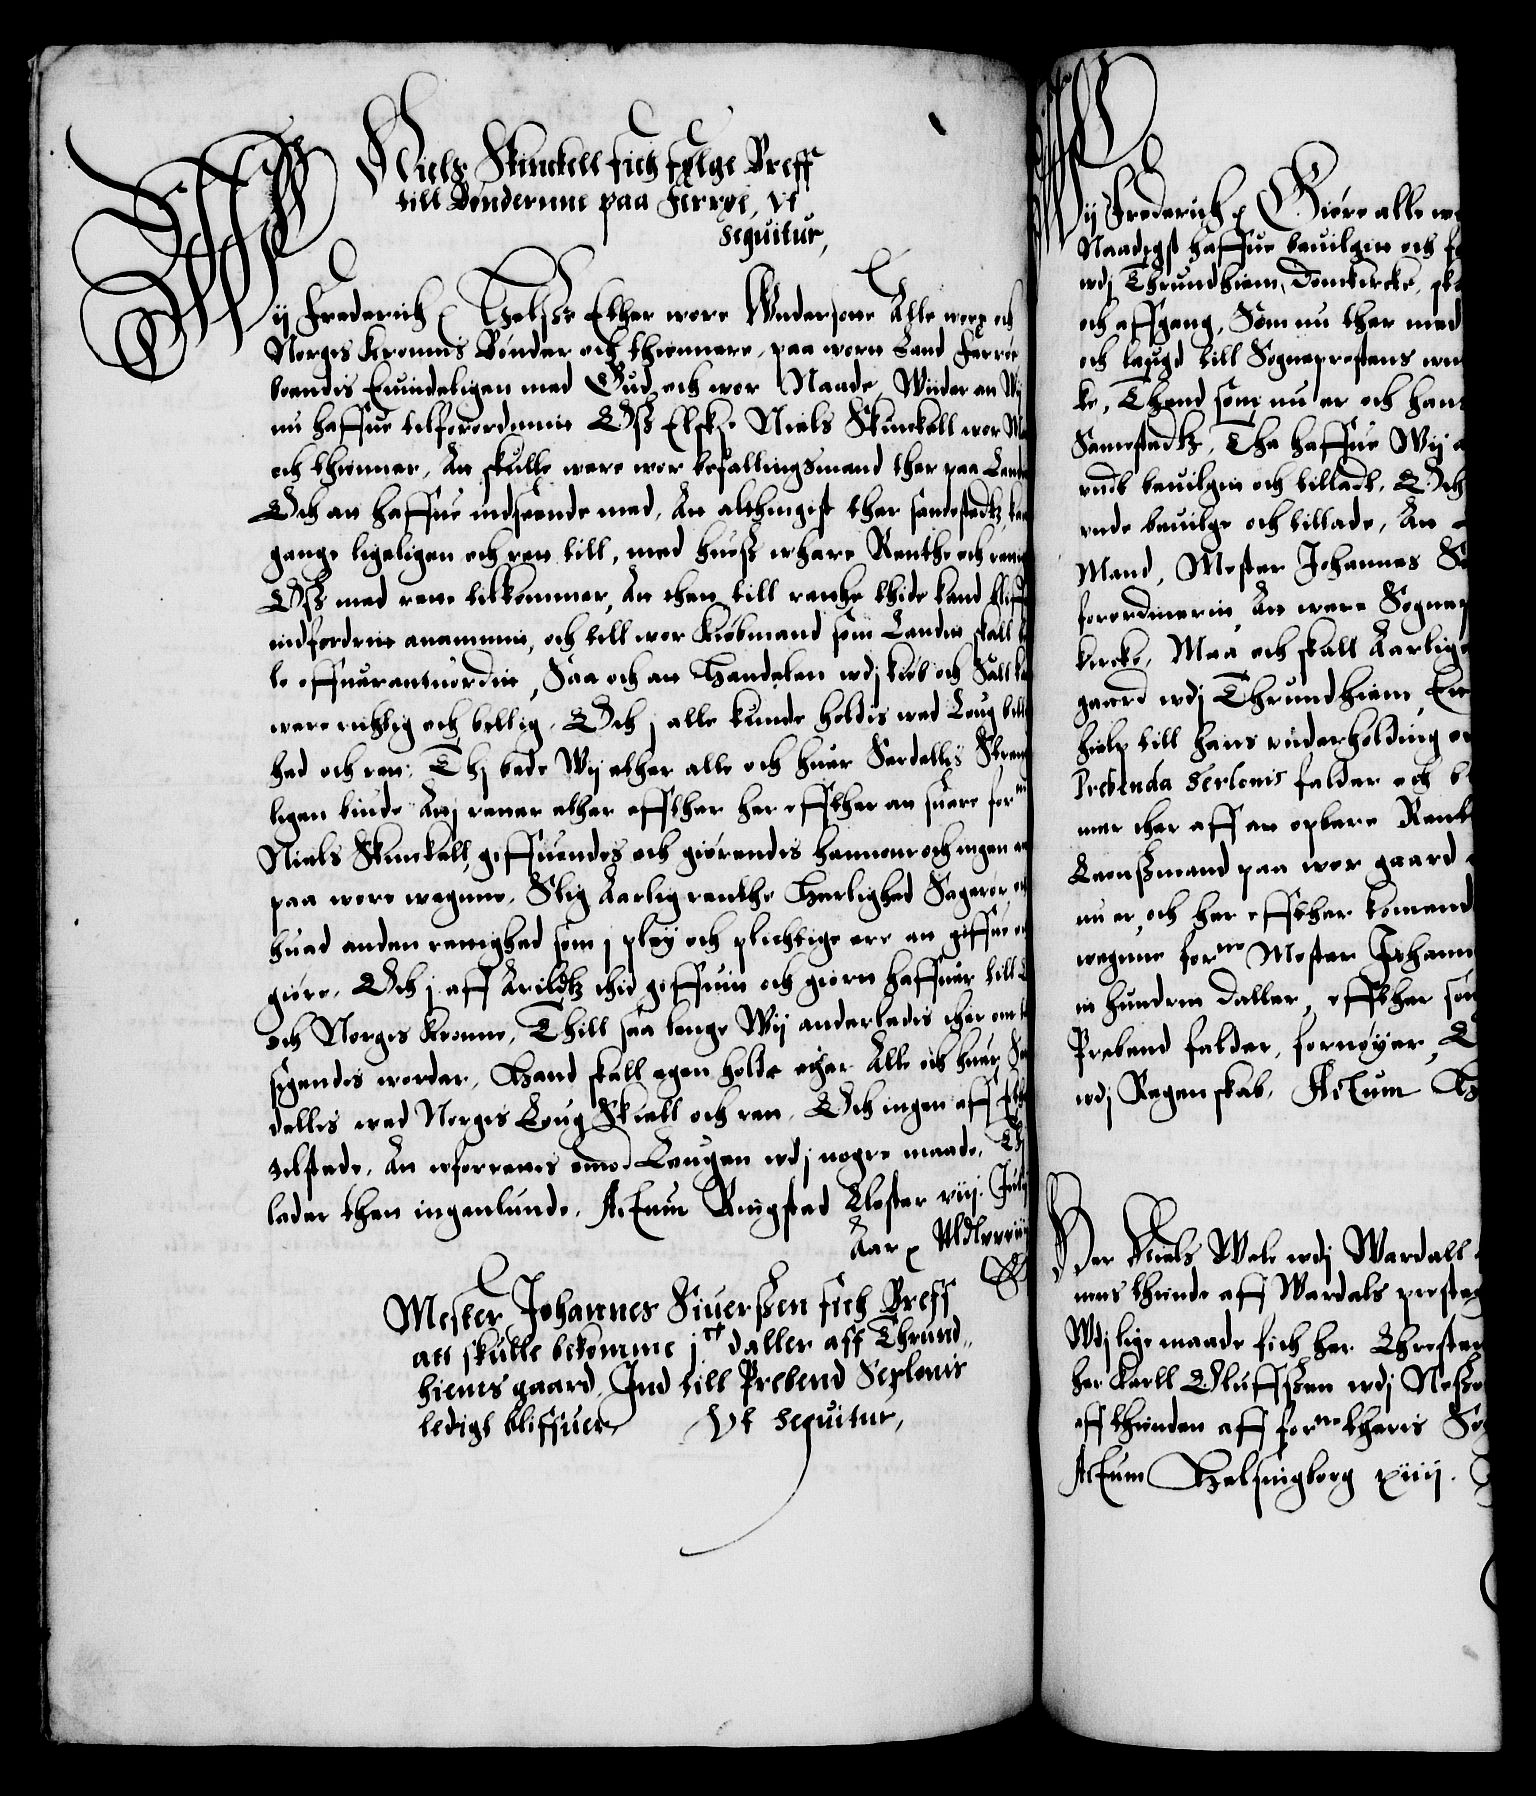 Niels Skinckell fich følge Breff
till Bøndernne paa Ferrøe, Vt
sequitur,
Wij Frederich ꝛ Helsse Ether wore Wndersotte Alle wore och
Norgis Kronnis Bønder och thiennere, paa wortt Land Ferrøe
boendis Euindeligen med Gud och wor Naade, Wiider att Wij
nu haffue tilforordennit Oss Elske Niels Skinckell wor
och thienner, Att skulle were wor befallingsmand ther paa Lande
Och att haffue indseende med, At althingist ther samestedtz
gange ligeligen och rett till, med huess whare Renthe och
Oss med rette tilkommer, At then till retthe thide kand bliff
indfordrit anammit, och till wor Kiøbmand som Landit skall
le offuerantuordit, Saa och att Handelen wdj kiøb och Sall
were richtig och billig. Och j alle kunde holdis wed Loug
hed och rett. Thj bede Wij ether alle och huer Serdellis Streng
ligen biude Attj retter ether effther her effther att suare for
Niels Skinckell, giffuendes och giørendis hannom och ingen
paa wore wegnne, Slig Aarlig renthe Herlighed Sagerør
huad anden rettighed som j pleÿ och plichtige ere att giffue
giøre. Och j aff Arildtz thid giffuitt och giort haffuer till
och Norges krone, Thill saa lenge Wij anderledis ther om
sigendes worder, Hand skall egen holde ether Alle och huer
dellis wed Norges Loug Skiell och rett. Och ingen aff
tilstede, At wforrettis emod Lougen wdj nogre maade, Thj
lader thett ingenlunde. Actum Ringsted Closter viij. Julij
Aar ꝛ Mdlxxxiij
Mester Johannes Siuerssen fich Breff
att skulle bekomme jᶜ daller aff Thrund,,
hiems gaard, Ind till Prebend Serlonis
ledigt bliffuer Vt sequitur,
Wij Frederich ꝛ Giøre alle
Naadigst haffue beuilgitt och
wdj Thrundhiem Domkircke,
och affgang, Som nu ther med
och laugd till Sogneprestens
ke, Thend som nu er och hans
Samestedtz, Tha haffue Wij
vndt beuilgit och tilladt, Och
vnde beuilge och tillade, At
Mand, Mester Johannes
forordnerit, Att were Sogne
kircke, Maa och skall Aarlige
gaard wdj Thrundhiem
hielp till hans vnderholding
Prebenda Serlonis falder och
mer ther aff att opbere
Lenssmand paa wor gaard
nu er, och her effther komend
wegnne forⁿᵉ Mester Johann
it hundrit Daller, effther
Prebend falder, fornøyer,
wdj Regenskab. Actum
Her Niels wdj Wardall
nens thiende aff Wardals preste
Wdj lige maade fich her Chresten
her Karll Oluffssøn wdj
aff thienden aff forⁿᵉ theris
Actum Helsingborg xiiij.